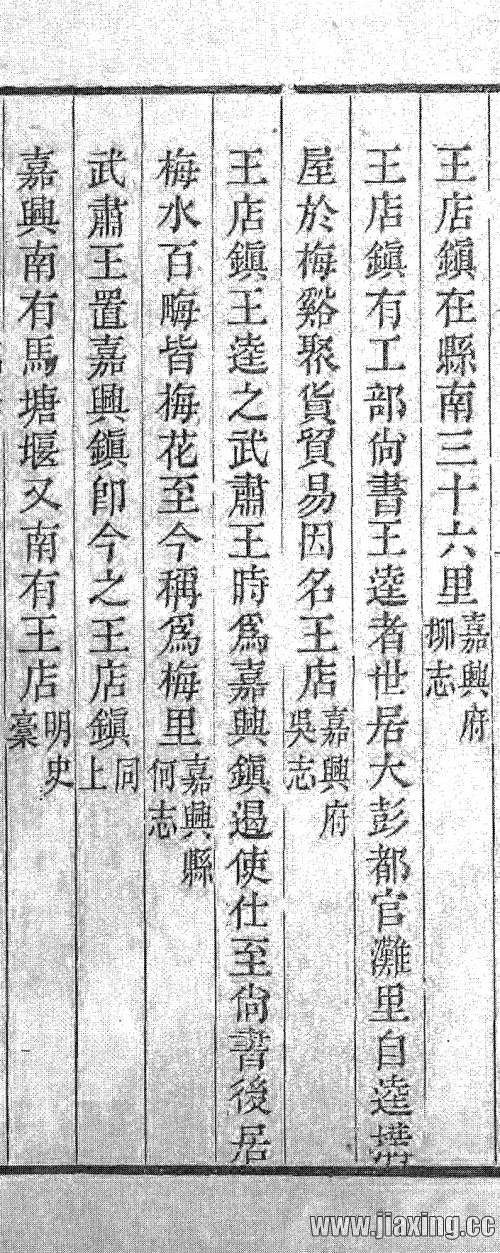 王店鎭在縣南三十六里嘉興府栁志
王店鎭有工部尙書王逵者世居大彭都官灘里自逵搆
屋於梅谿聚貨貿易因名王店嘉興府吳志
王店鎭王逵之武肅王時爲嘉興鎭遏使仕至尙書後居
梅水百畮皆梅花至今稱爲梅里嘉興縣何志
武肅王置嘉興鎭卽今之王店鎭同上
嘉興南有馬塘堰又南有王店明史稾
www.jiaxing.cc